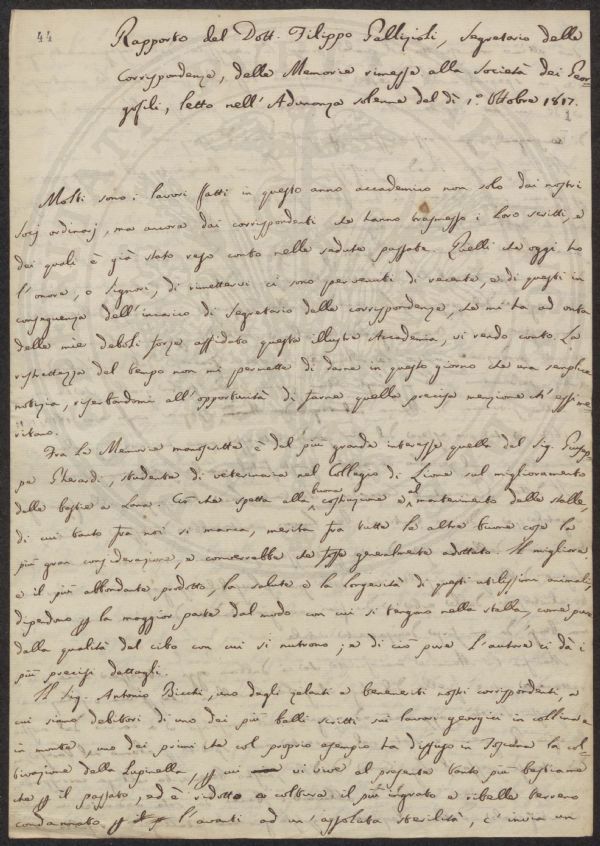 44
Rapporto del Dott. Filippo Gallizioli, Segretario delle
Corrispondenze, delle Memorie rimesse alla Società dei Geor-
gofili, letto nell'Adunanza solenne del dì 1.° Ottobre 1817.
1
Molti sono i lavori fatti in questo anno accademico non solo dai nostri
Socj ordinarj, ma ancora dai corrispondenti che hanno trasmesso i loro scritti, e
dei quali è già stato reso conto nelle sedute passate. Quelli che oggi ho
l'onore, o Signori, di rimettervi ci sono pervenuti di recente, e di questi in
conseguenza dell'incarico di Segretario delle corrispondenze, che mi ha ad onta
delle mie deboli forze affidato questa illustre Accademia, vi rendo conto. La
ristrettezza del tempo non mi permette di darne in questo giorno che una semplice
notizia, riserbandomi all'opportunità di farne quella precisa menzione ch'essi me-
ritano.
Fra le Memorie manoscritte è del più grande interesse quella del Sig. Giusep-
pe Gherardi, studente di veterinaria nel Collegio di Lione sul miglioramento
delle bestie a Lana. Ciò che spetta alla buona costruzione e al mantenimento delle stalle,
di cui tanto fra noi si manca, merita fra tutte le altre buone cose la
più gran considerazione, e converrebbe che fosse generalmente adottato. Il migliore
e il più abbondante prodotto, la salute e la longevità di questi utilissimi animali,
dipendono p la maggior parte dal modo con cui si tengono nelle stalle, come pure
dalla qualità del cibo con cui si nutrono; e di ciò pure l'autore ci dà i
più precisi dettagli.
Il Sig. Antonio Bicchi, uno degli zelanti e benemeriti nostri corrispondenti, a
cui siamo debitori di uno dei più belli scritti sui lavori georgici in collina e
in monte, uno dei primi che col proprio esempio ha diffuso in Toscana la col-
tivazione della Lupinella, p cui vi vive al presente tanto più bestiame
che p il passato, ed è ridotto a coltura il più ingrato e ribelle terreno
condannato p l'avanti ad un'assoluta sterilità, c'invia un